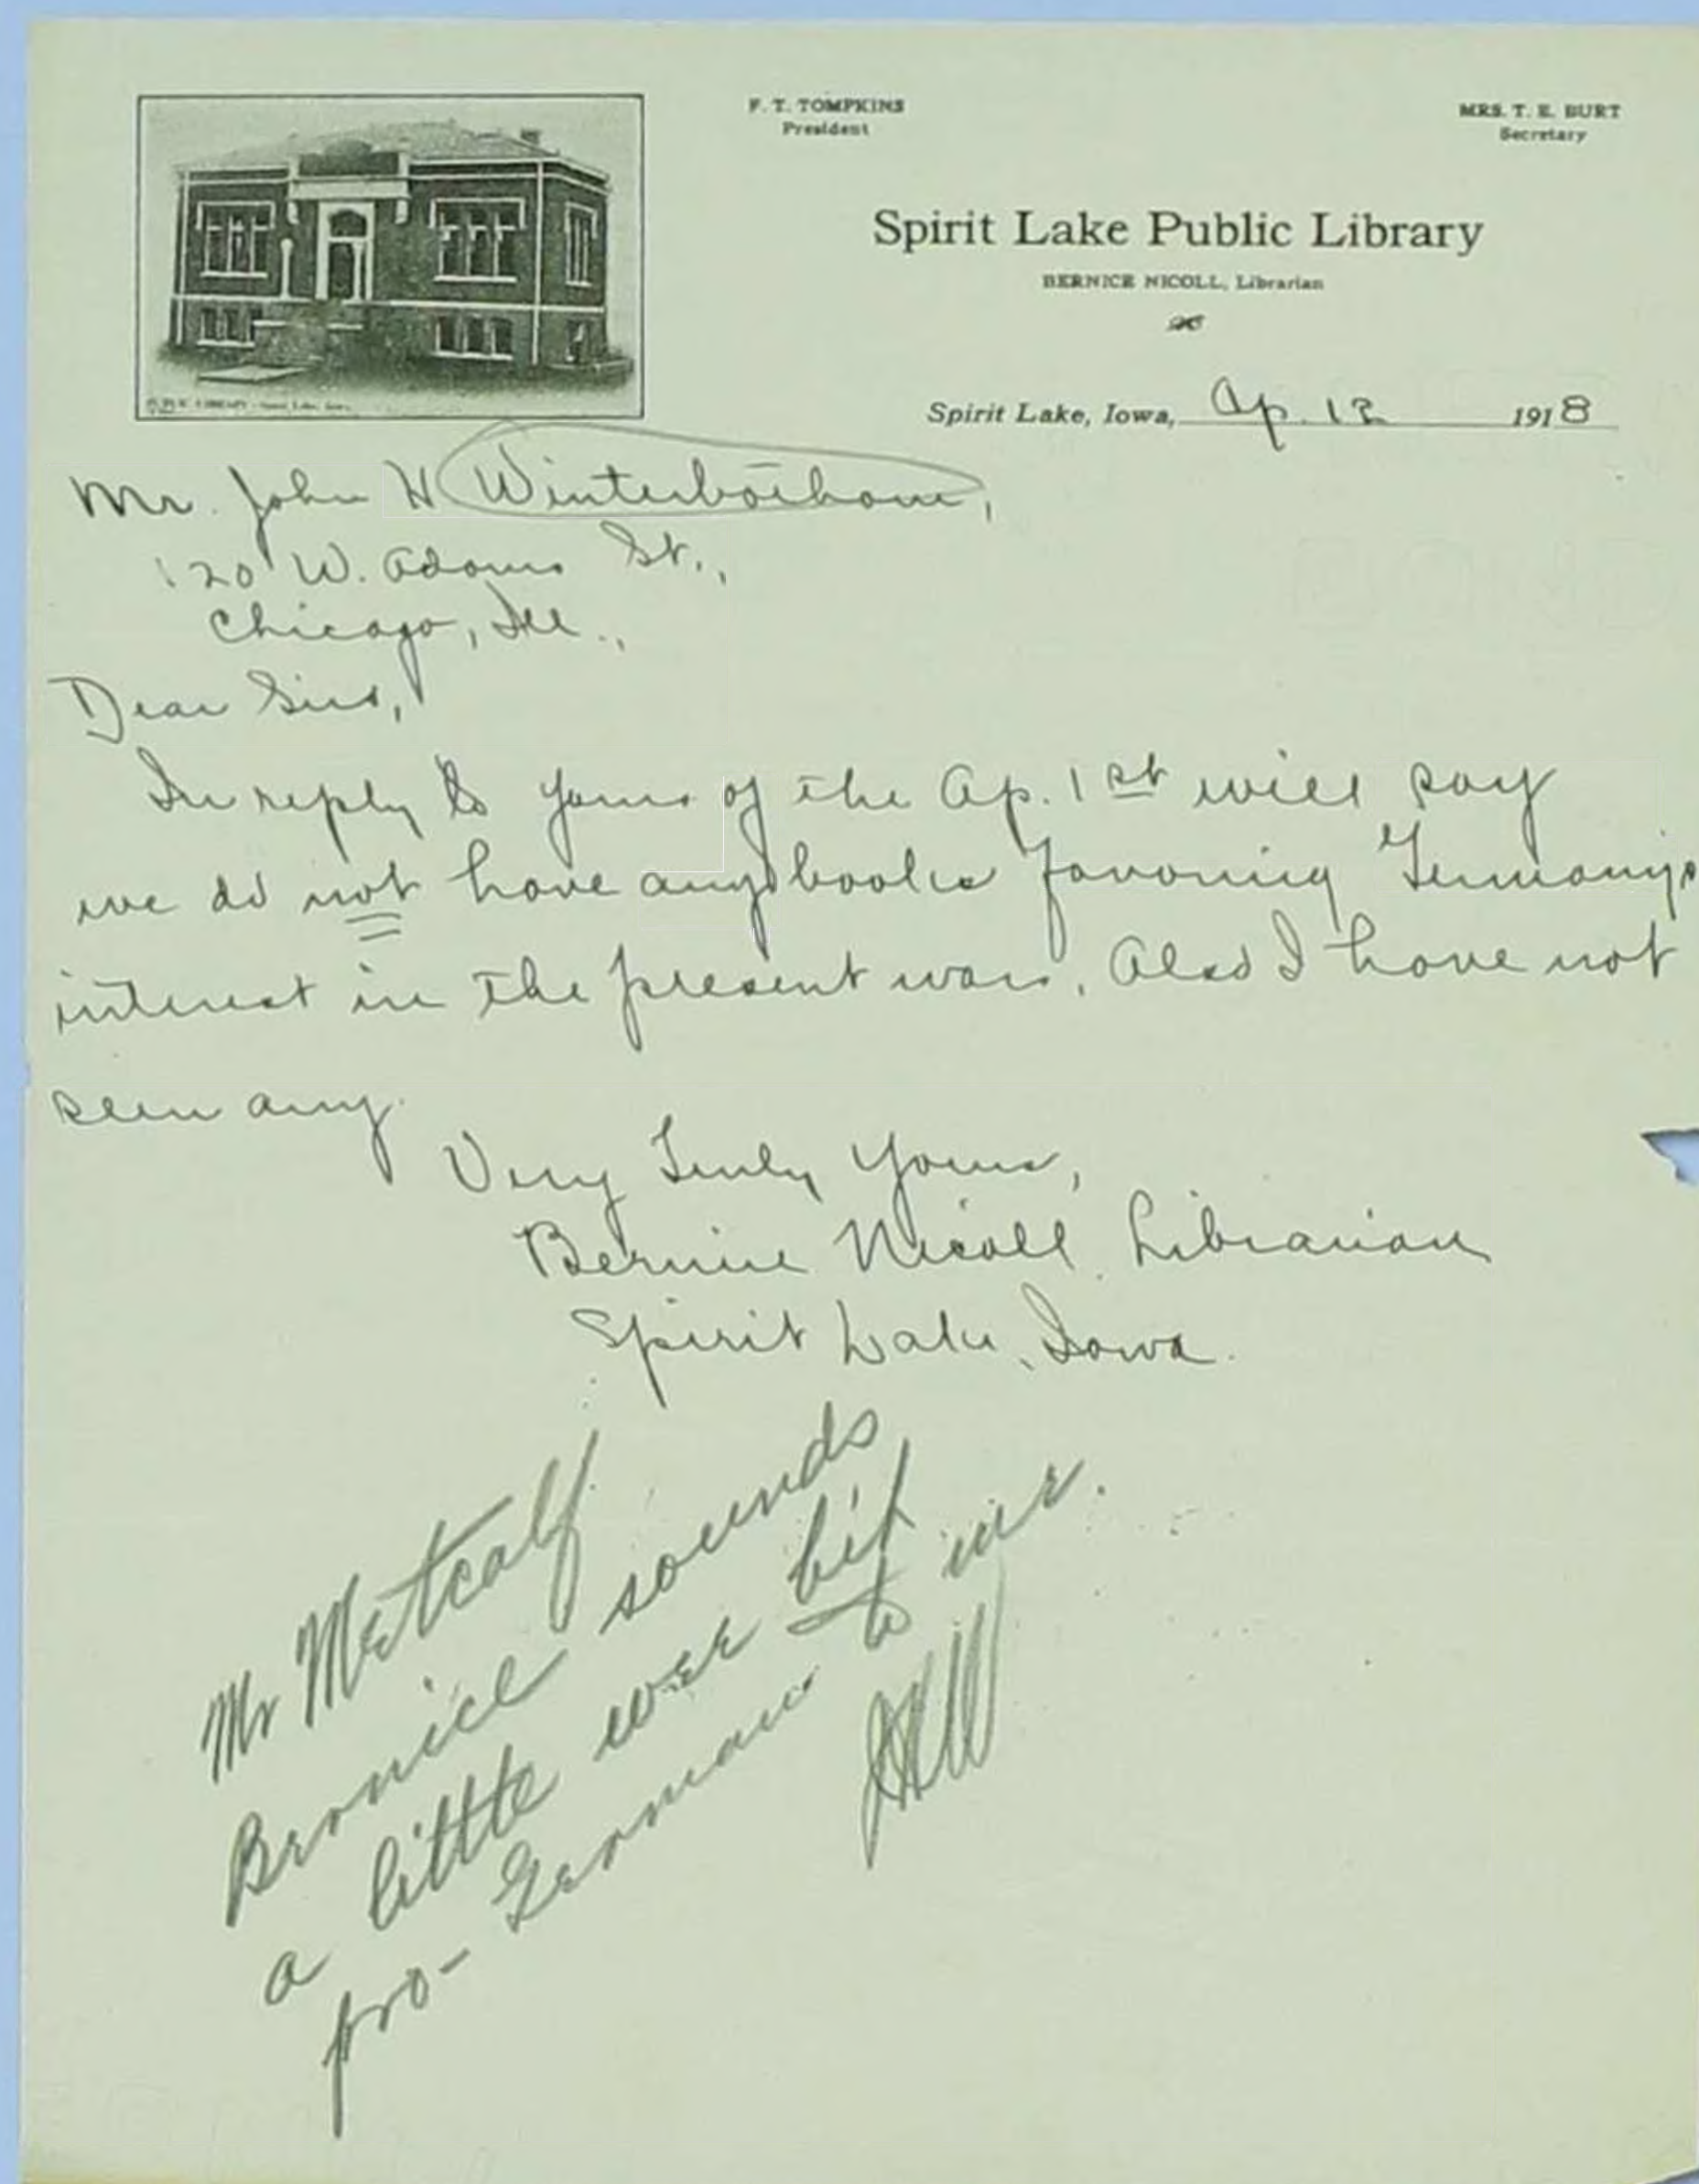 F. T. TOMPKINS
President
MRS. T. E. BURT
Secretary
Spirit Lake Public Library
BERNICE NICOLL, Librarian
Spirit Lake, Iowa, Ap. 12 1918
PUBLIC LIBRARY - Spirit Lake, Iowa
Mr. John H Winterbotham,
120 W. Adams St.,
Chicago, Ill.,
Dear Sirs,
In reply to yours of the Ap. 1st will say
we do not have any books favoring Germany's
interest in the present war. Also I have not
seen any.
Very Truly Yours,
Bernice Nicoll, Librarian
Spirit Lake, Iowa.
Mr Metcalf
Bernice sounds
a little wee bit
pro-German to me.
JHW